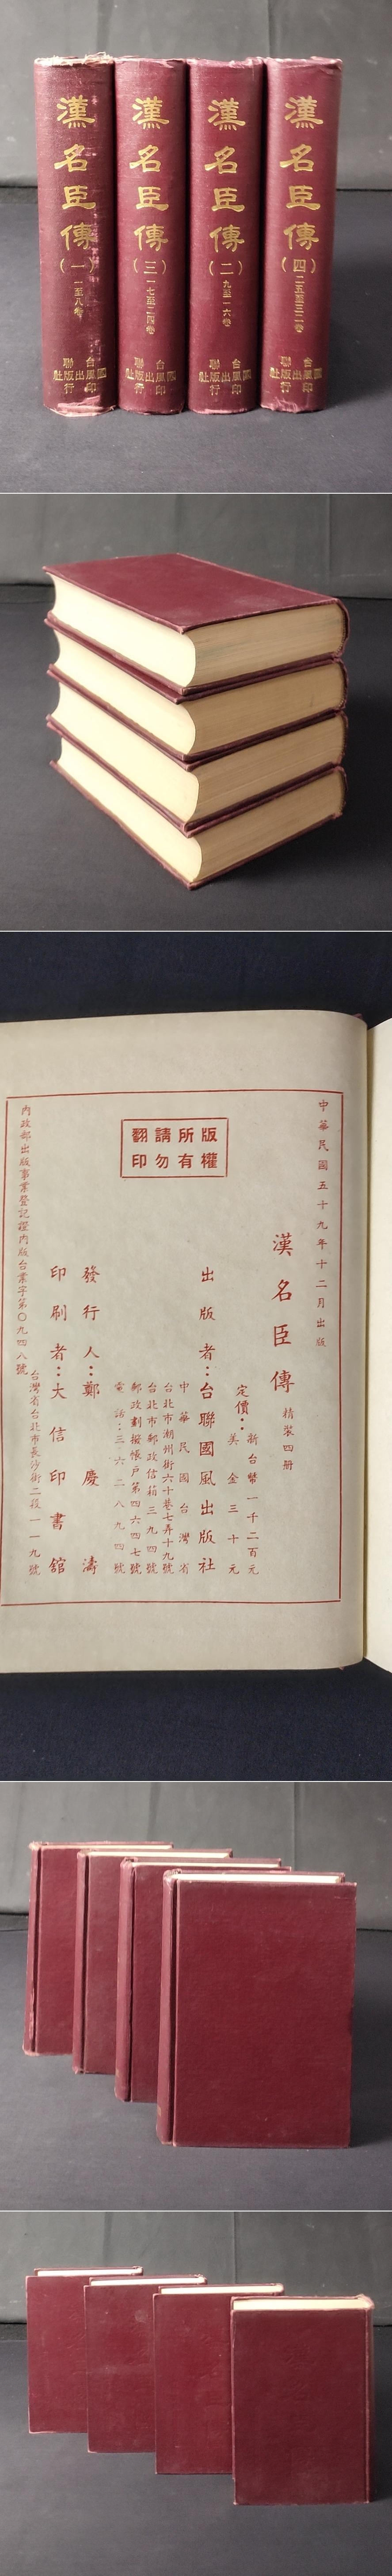 漢名臣傳
(一)
一至八卷
台聯
國風出版社
印行
漢名臣傳
(三)
一七至二四卷
台聯
國風出版社
印行
漢名臣傳
(二)
九至一六卷
台聯
國風出版社
印行
漢名臣傳
(四)
二五至三二卷
台聯
國風出版社
印行
版權所有
翻印請勿
中華民國五十九年十二月出版
漢名臣傳 精裝四冊
定價：新台幣一千二百元
美金三十元
出版者：台聯國風出版社
中華民國台灣省
台北市潮州街六十巷七弄十九號
台北市郵政信箱三九四號
郵政劃撥帳戶第四六四七號
電話：三六二八九四號
發行人：鄭慶濤
印刷者：大信印書舘
台灣省台北市長沙街二段一一九號
內政部出版事業登記證內版台業字第〇九四八號